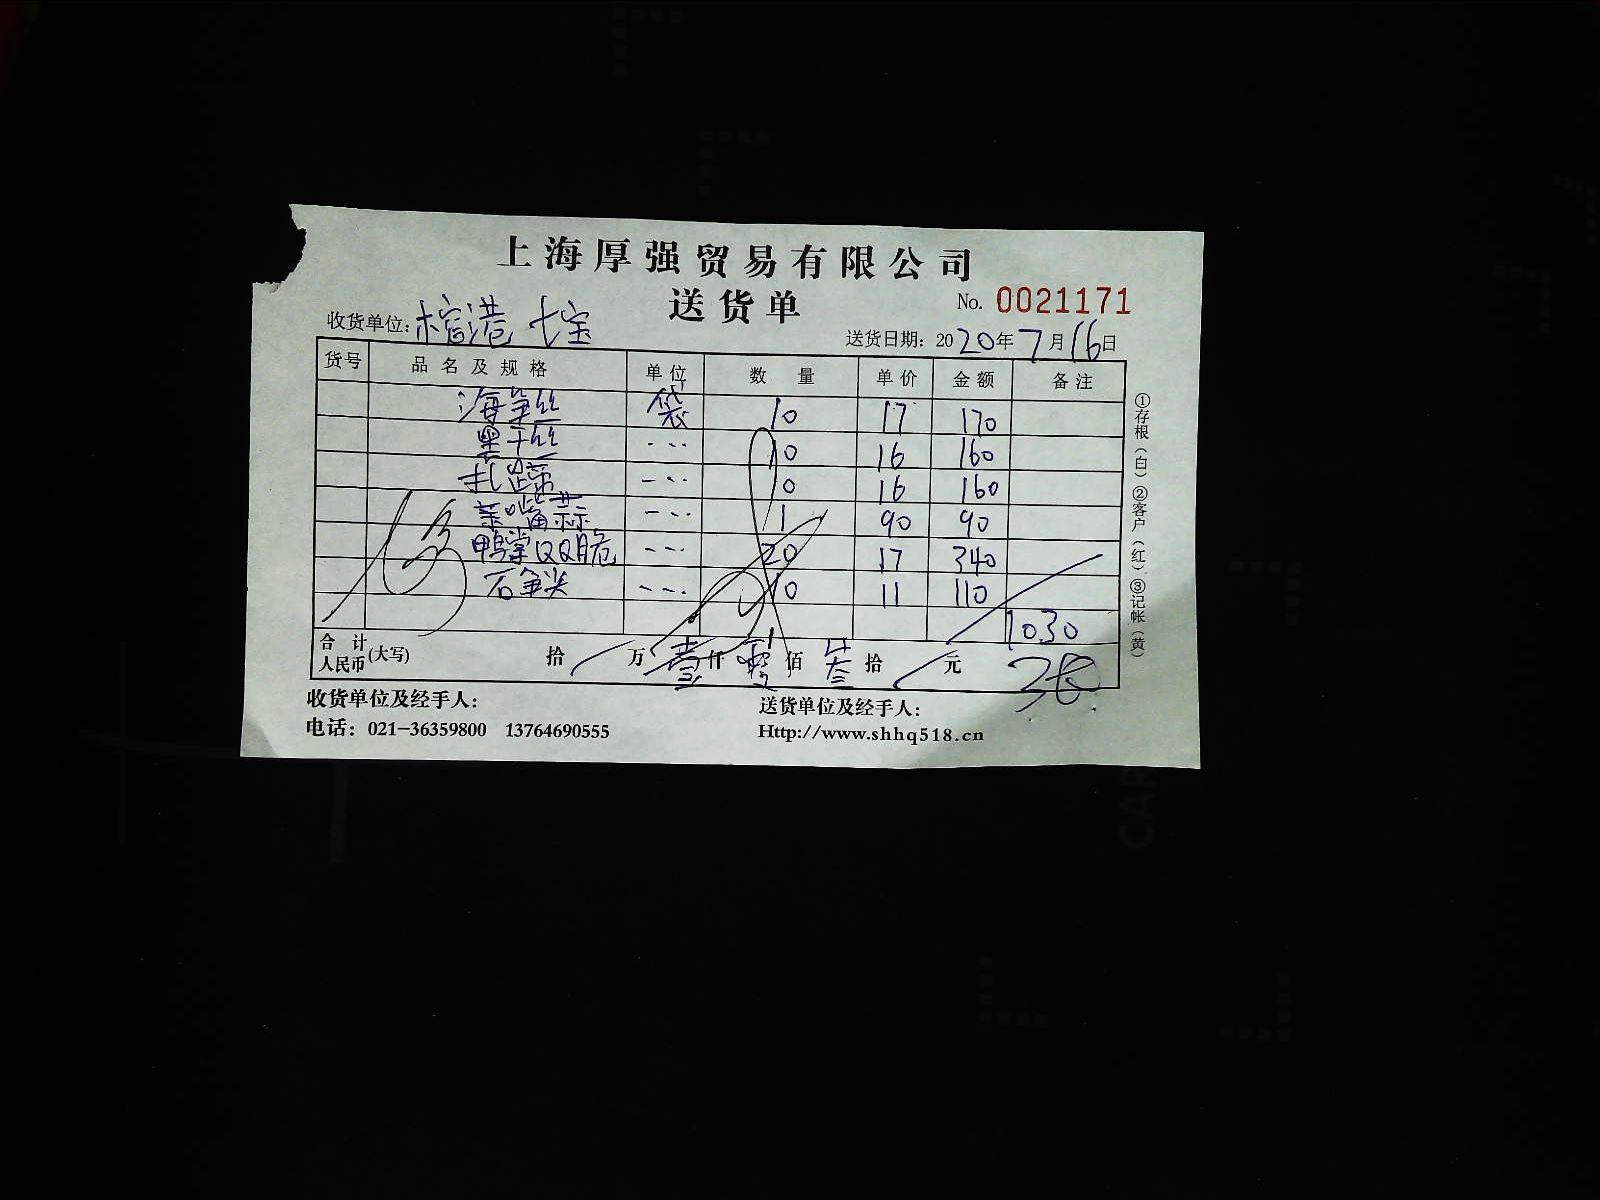 上海厚强贸易有限公司
送货单
No. 0021171
收货单位: 七宝
送货日期: 2020年7月16日
货号 品名及规格 单位 数量 单价 金额 备注
海笋丝 袋 10 17 170
黑干丝 --- 10 16 160
扎蹄 --- 10 16 160
--- 1 90 90
鸭掌QQ脆 --- 20 17 340
石笋尖 --- 10 11 110
1030
合计人民币(大写) 拾 / 万 壹仟 零佰 叁拾 / 元
收货单位及经手人:
送货单位及经手人:
电话: 021-36359800 13764690555
Http://www.shhq518.cn
①存根(白)②客户(红)③记帐(黄)